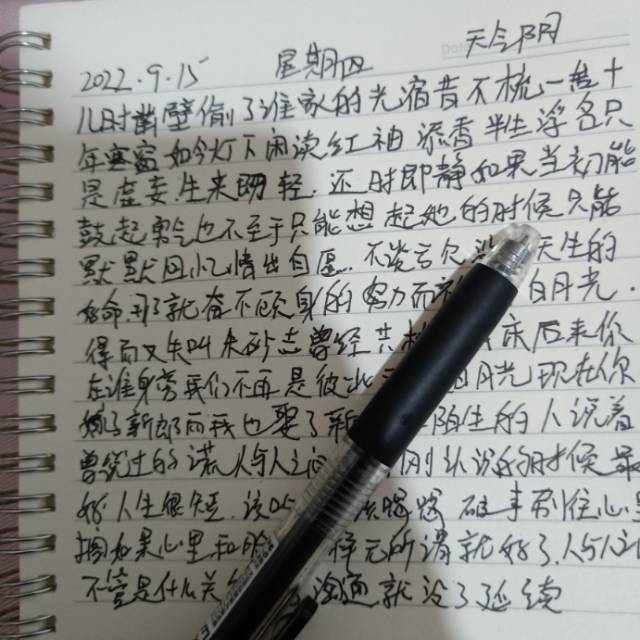 天今阴
2022.9.15 星期四
儿时凿壁偷了谁家的光宿昔不梳一苦十
年寒窗如今灯下闲读红袖添香半生浮名只
是虚妄.生来明轻.还时即静如果当初能
鼓起勇气也不至于只能想起她的时候只能
默默回忆情出自愿.不谈亏欠 天生的
好命.那就奋不顾身的努力而 白月光.
得而又失叫朱砂志曾经共 床后来你
在谁身旁我们不再是彼此 月光现在你
嫁了新郎而我也娶了新 陌生的人说着
曾说过的谎人与人之间 刚认识的时候最
好.人生很短.该吃 碰手刹住心里
拥如果心里和 所谓就好了.人与人之
不管是什么关 沟通就没了延续